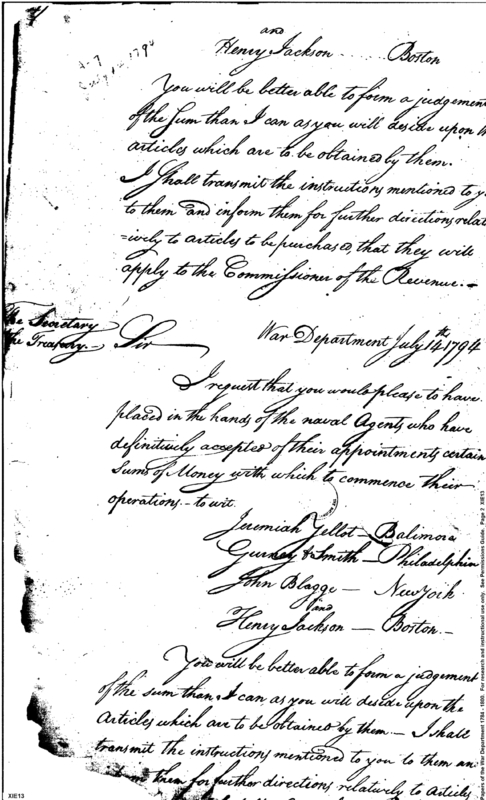 and
Henry Jackson ..... Boston
You will be better able to form a judgement
of the Sum than I can as you will decide upon
articles which are to be obtained by them.
I Shall transmit the instructions mentioned to
to them and inform them for further directions relat
=ively to articles to be purchased, that they will
apply to the Commissioner of the Revenue.-
War Department July 14th 1794
The Secretary
the Treasury.
Sir
I request that you would please to have
placed in the hands of the naval Agents who have
definitively accepted of their appointments certain
Sums of Money with which to commence their
operations - to wit.
Jeremiah Yellot - Balimore
Gurney & Smith - Philadelphia
John Blagge - New York
and
Henry Jackson - Boston.-
You will be better able to form a judgement
of the sum than I can as you will decide upon the
Articles which are to be obtained by them - I shall
transmit the instructions mentioned to you to them an
them for further directions relatively to Articles
XIE13
Papers of the War Department 1784 - 1800. For research and instructional use only. See Permissions Guide. Page 2 XIE13